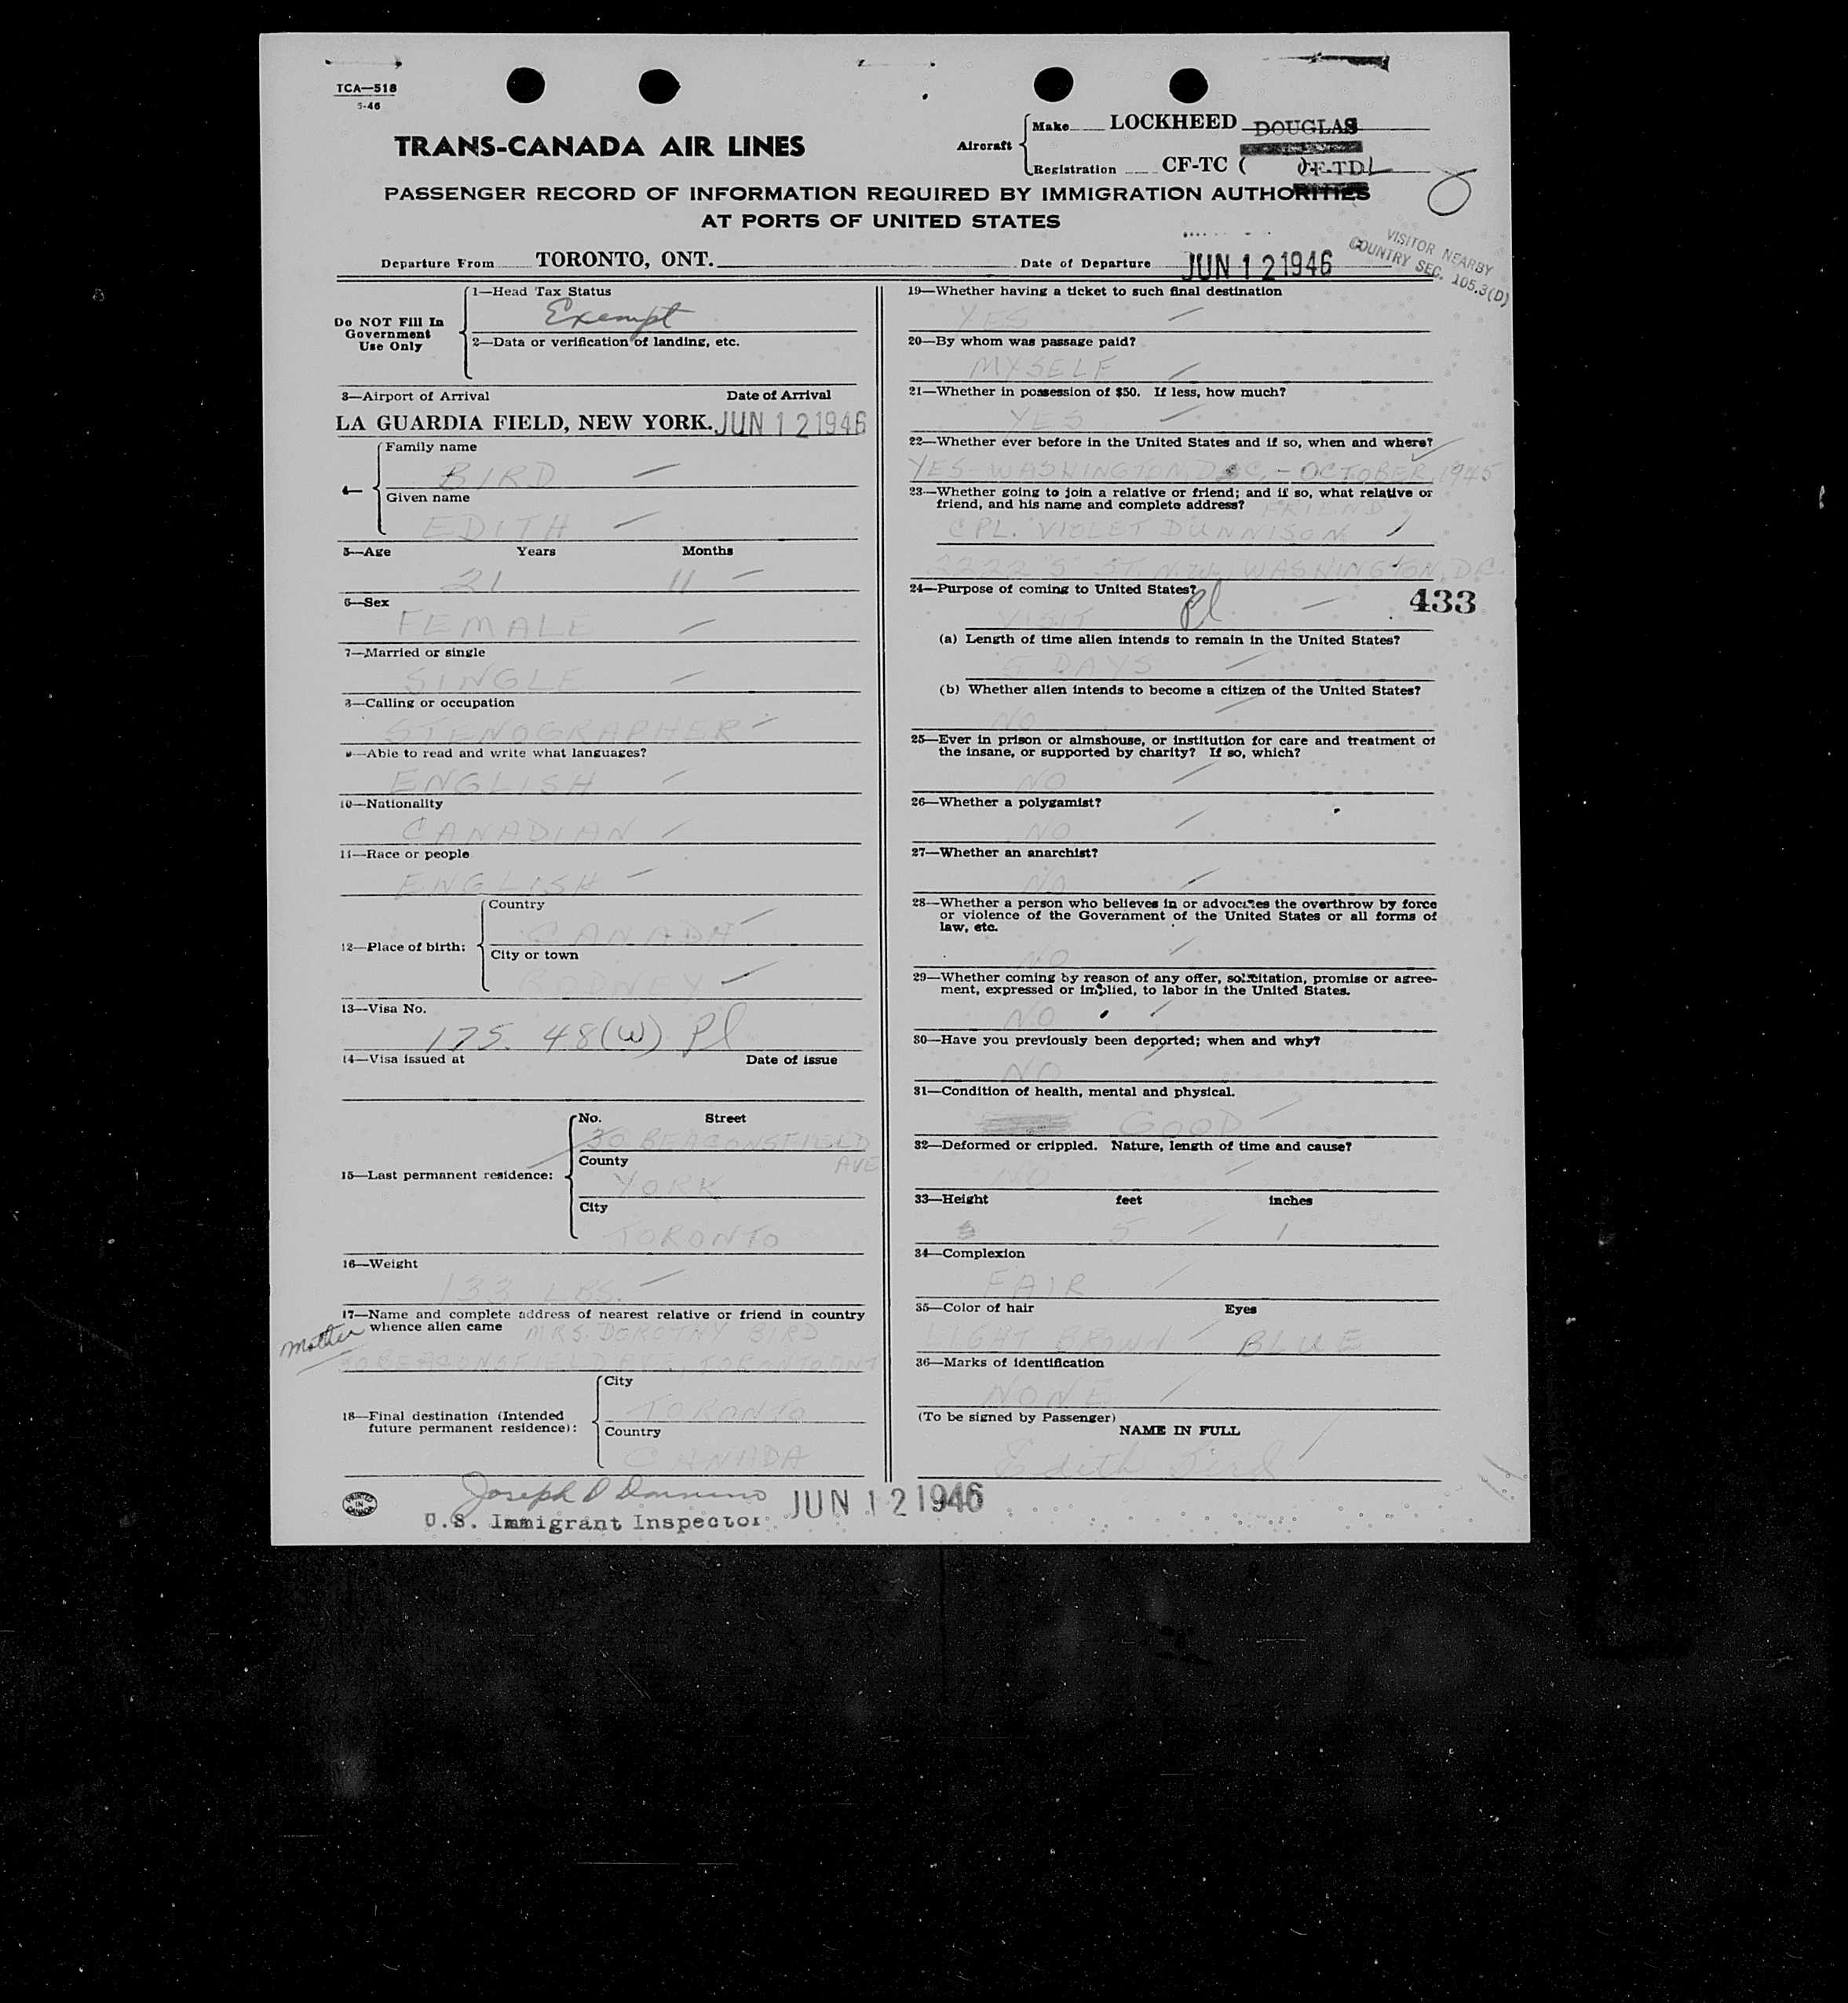 TCA—518
5-46
TRANS-CANADA AIR LINES
Aircraft
Make LOCKHEED DOUGLAS
Registration CF-TC ( ) CF-TDL
PASSENGER RECORD OF INFORMATION REQUIRED BY IMMIGRATION AUTHORITIES
AT PORTS OF UNITED STATES
VISITOR NEARBY
COUNTRY SEC. 105.3(D)
Departure From TORONTO, ONT. Date of Departure JUN 12 1946
Do NOT Fill In
Government
Use Only
1—Head Tax Status
Exempt
2—Data or verification of landing, etc.
3—Airport of Arrival Date of Arrival
LA GUARDIA FIELD, NEW YORK. JUN 12 1946
4—
Family name
BIRD
Given name
EDITH
5—Age Years Months
21 11
6—Sex
FEMALE
7—Married or single
SINGLE
8—Calling or occupation
STENOGRAPHER
9—Able to read and write what languages?
ENGLISH
10—Nationality
CANADIAN
11—Race or people
ENGLISH
12—Place of birth:
Country
CANADA
City or town
RODNEY
13—Visa No.
175. 48(W) Pl
14—Visa issued at Date of issue
15—Last permanent residence:
No. Street
30 BEACONSFIELD
AVE
County
YORK
City
TORONTO
16—Weight
133 LBS.
17—Name and complete address of nearest relative or friend in country
whence alien came MRS. DOROTHY BIRD
Mother
30 BEACONSFIELD AVE, TORONTO ONT
18—Final destination (Intended
future permanent residence):
City
TORONTO
Country
CANADA
19—Whether having a ticket to such final destination
YES
20—By whom was passage paid?
MYSELF
21—Whether in possession of $50. If less, how much?
YES
22—Whether ever before in the United States and if so, when and where?
YES - WASHINGTON D.C. - OCTOBER, 1945
23—Whether going to join a relative or friend; and if so, what relative or
friend, and his name and complete address? FRIEND
CPL. VIOLET DUNNISON
2222 S ST. N.W. WASHINGTON, DC.
24—Purpose of coming to United States?
VISIT Pl
433
(a) Length of time alien intends to remain in the United States?
5 DAYS
(b) Whether alien intends to become a citizen of the United States?
NO
25—Ever in prison or almshouse, or institution for care and treatment of
the insane, or supported by charity? If so, which?
NO
26—Whether a polygamist?
NO
27—Whether an anarchist?
NO
28—Whether a person who believes in or advocates the overthrow by force
or violence of the Government of the United States or all forms of
law, etc.
NO
29—Whether coming by reason of any offer, solicitation, promise or agree-
ment, expressed or implied, to labor in the United States.
NO
30—Have you previously been deported; when and why?
NO
31—Condition of health, mental and physical.
GOOD
32—Deformed or crippled. Nature, length of time and cause?
NO
33—Height feet inches
5 1
34—Complexion
FAIR
35—Color of hair Eyes
LIGHT BROWN BLUE
36—Marks of identification
NONE
(To be signed by Passenger)
NAME IN FULL
Edith Bird
PRINTED IN CANADA
Joseph D
U.S. Immigrant Inspector JUN 12 1946